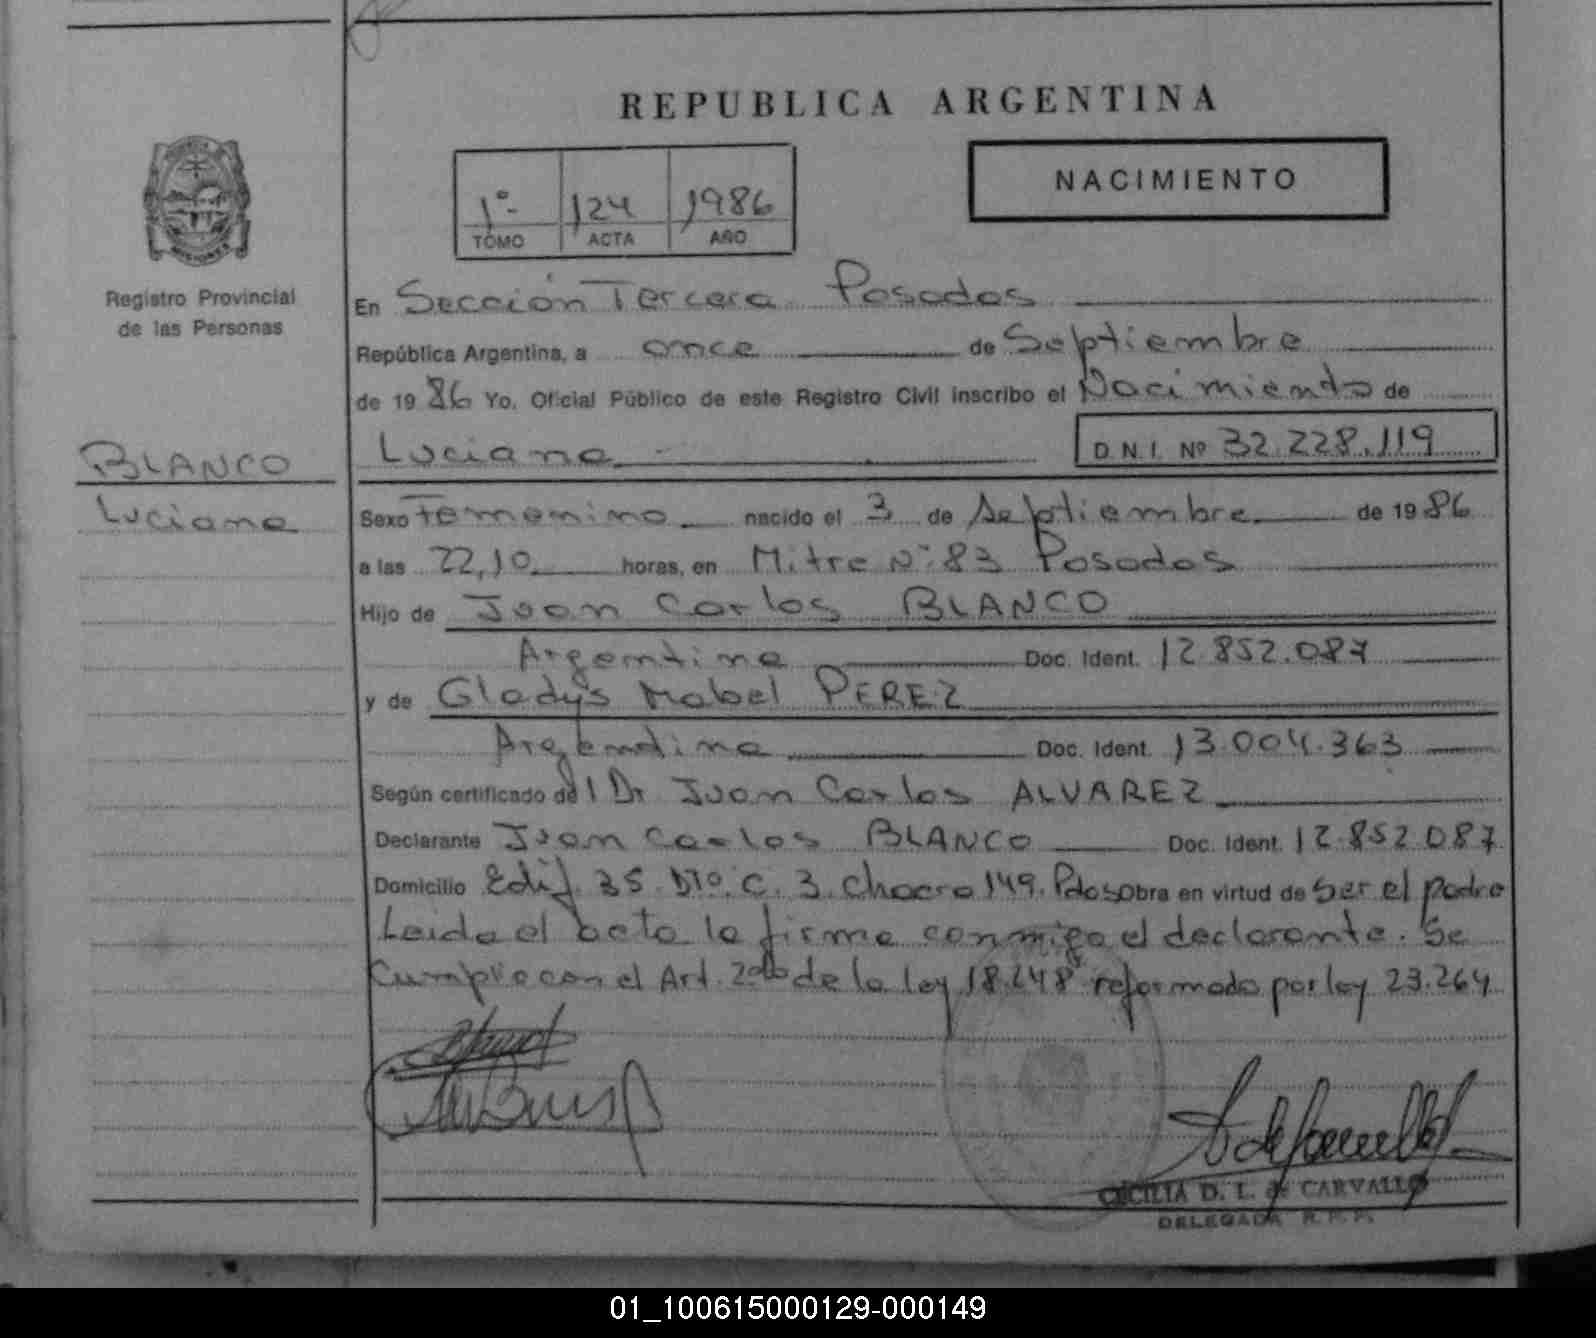 REPUBLICA ARGENTINA
NACIMIENTO
1º 124 1986
TOMO ACTA AÑO
Registro Provincial
de las Personas
En Sección Tercera Posadas
República Argentina, a once de Septiembre
de 1986 Yo, Oficial Público de este Registro Civil inscribo el Nacimiento de
BLANCO
Luciana
Luciana D.N.I. Nº 32.228.119
Sexo Femenino nacido el 3 de Septiembre de 1986
a las 22,10 horas, en Mitre Nº 83 Posadas
Hijo de Juan Carlos BLANCO
Argentina Doc. Ident. 12.852.087
y de Gladys Mabel PEREZ
Argentina Doc. Ident. 13.004.363
Según certificado del Dr Juan Carlos ALVAREZ
Declarante Juan Carlos BLANCO Doc. Ident. 12.852.087
Domicilio Edif. 35. Dto. C. 3. Chacra 149. Pdas obra en virtud de ser el padre
Leida el acta la firma conmigo el declarante. Se
Cumplio con el Art. 2do de la ley 18.248 reformada por ley 23.264
CECILIA D. L. de CARVALLO
DELEGADA R. P. P.
01_100615000129-000149